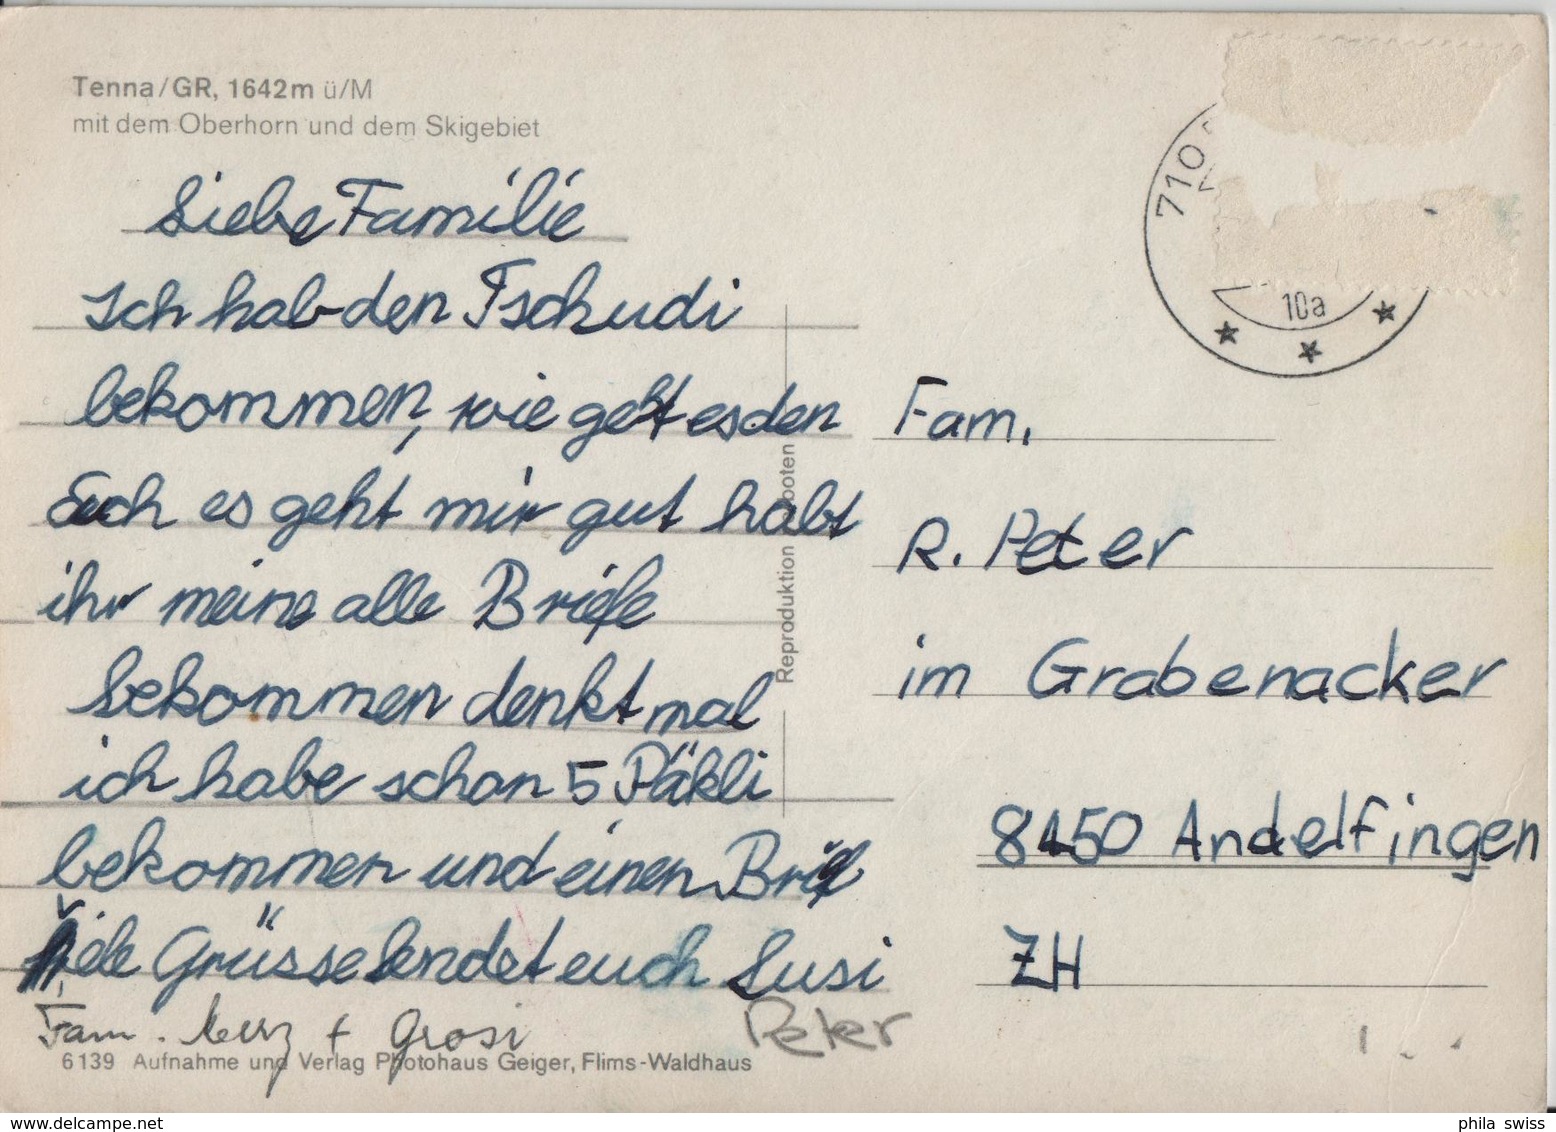 Tenna/GR, 1642m ü/M
mit dem Oberhorn und dem Skigebiet
Liebe Familie
Ich hab den Tschudi
bekommen, wie geht es den
Euch es geht mir gut habt
ihr meine alle Briefe
bekommen denkt mal
ich habe schon 5 Päkli
bekommen und einen Brief
Viele Grüsse sendet euch Susi
Fam. + Grosi
Peter
6139 Aufnahme und Verlag Photohaus Geiger, Flims-Waldhaus
Reproduktion verboten
710
10a
Fam.
R. Peter
im Grabenacker
8450 Andelfingen
ZH
phila swiss